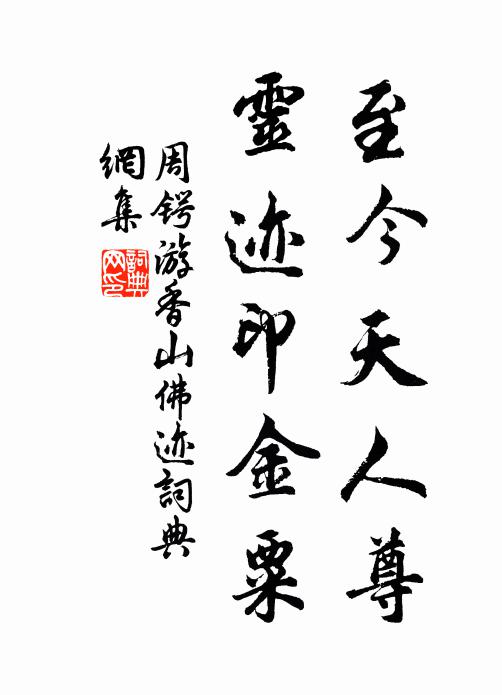 至今天人尊
靈迹印金粟
周锷游香山佛迹詞典
網集
詞典
网印